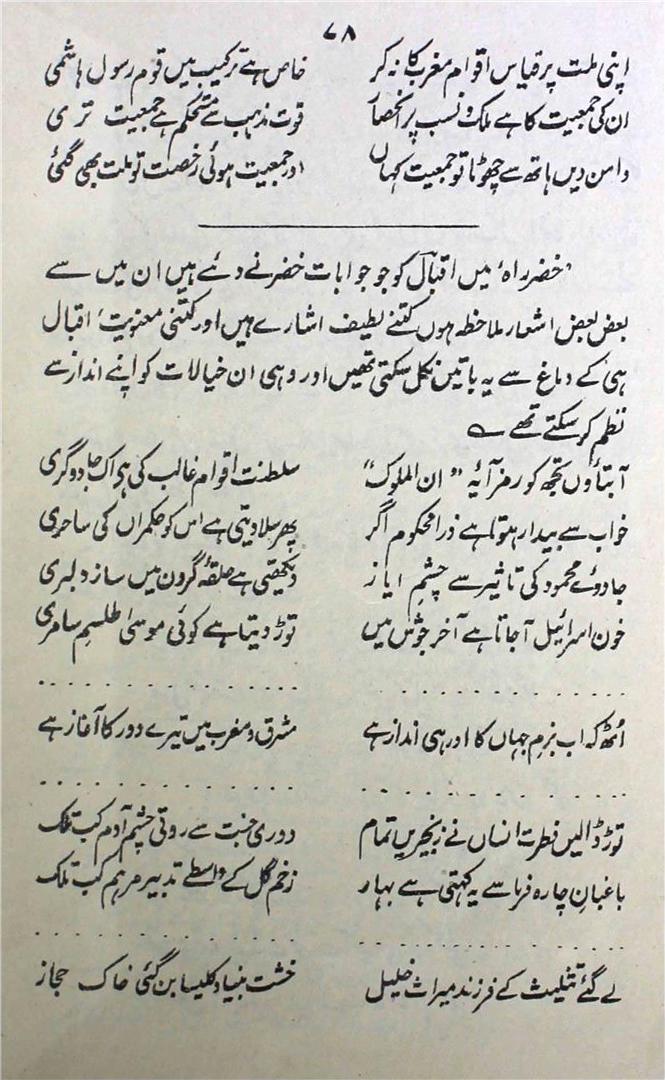 ۷۸
اپنی ملت پر قیاس اقوام مغرب کا نہ کر خاص ہے ترکیب میں قوم رسول ہاشمی
ان کی جمعیت کا ہے ملک و نسب پر انحصار قوت مذہب سے مستحکم ہے جمعیت تری
دامن دیں ہاتھ سے چھوٹا تو جمعیت کہاں اور جمعیت ہوئی رخصت تو ملت بھی گئی
'خضر راہ' میں اقبال کو جو جوابات خضر نے دئے ہیں ان میں سے
بعض بعض اشعار ملاحظہ ہوں کتنے لطیف اشارے ہیں اور کتنی معنویت، اقبال
ہی کے دماغ سے یہ باتیں نکل سکتی تھیں اور وہی ان خیالات کو اپنے انداز سے
نظم کر سکتے تھے ؎
آبتاؤں تجھ کو رمز آیۂ "ان الملوک" سلطنت اقوام غالب کی ہی اک جادوگری
خواب سے بیدار ہوتا ہے ذرا محکوم اگر پھر سلا دیتی ہے اس کو حکمراں کی ساحری
جادوئے محمود کی تاثیر سے چشمِ ایاز دیکھتی ہے حلقۂ گردن میں ساز دلبری
خون اسرائیل آجاتا ہے آخر جوش میں توڑ دیتا ہے کوئی موسیٰ طلسمِ سامری
. . . . . . . . . . . . . . . . . . . . . . . . . .
اُٹھ کہ اب بزمِ جہاں کا اور ہی انداز ہے مشرق و مغرب میں تیرے دور کا آغاز ہے
. . . . . . . . . . . . . . . . . . . . . . . . . .
توڑ ڈالیں فطرت انساں نے زنجیریں تمام دوری جنت سے روتی چشمِ آدم کب تلک
باغبانِ چارہ فرما سے یہ کہتی ہے بہار زخم گل کے واسطے تدبیر مرہم کب تلک
. . . . . . . . . . . . . . . . . . . . . . . . . .
لے گئے تثلیث کے فرزند میراث خلیل خشت بنیاد کلیسا بن گئی خاک حجاز